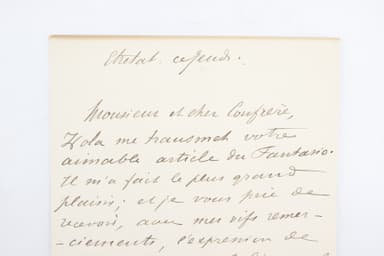 Etretat. ce Jeudi.
Monsieur et cher Confrère,
Zola me transmet votre
aimable article du Fantasio.
Il m'a fait le plus grand
plaisir; et je vous prie de
recevoir, avec mes vifs remer-
-ciements, l'expression de